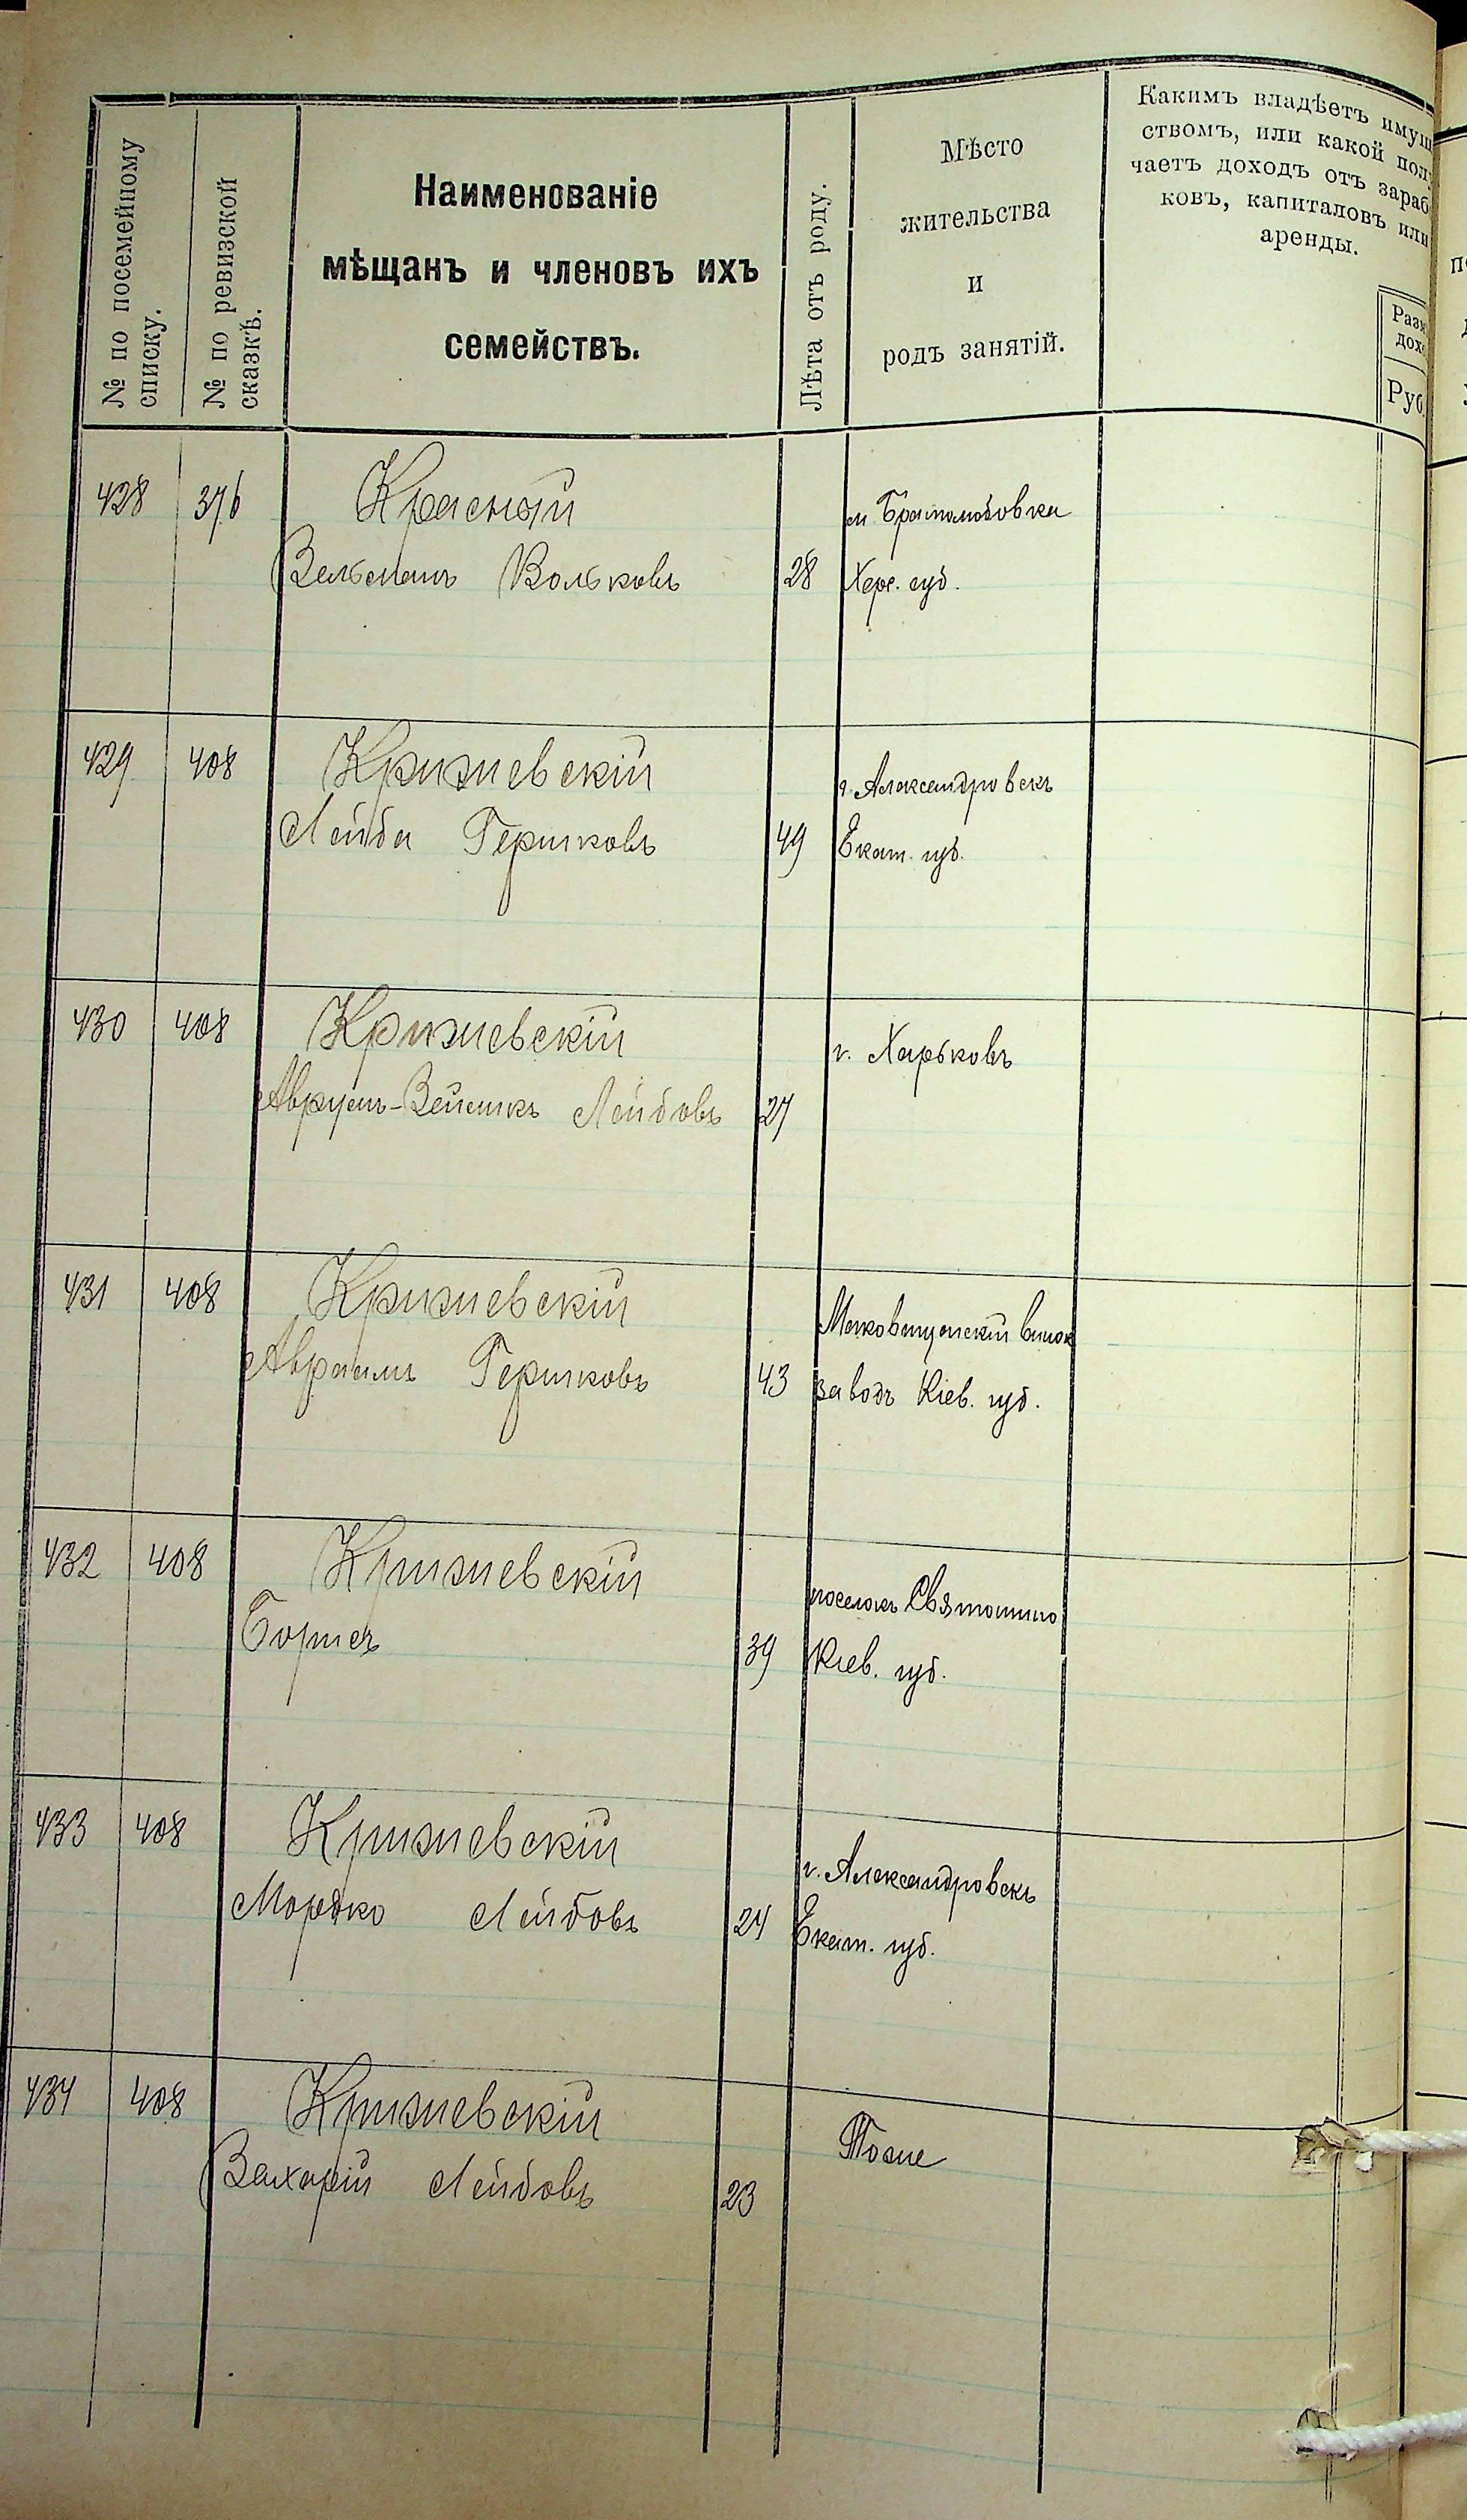 № по посемейному
списку.
№ по ревизской
сказкѣ.
Наименованіе
мѣщанъ и членовъ ихъ
семействъ.
Лѣта отъ роду.
Мѣсто
жительства
и
родъ занятій.
Какимъ владѣетъ имущ
ствомъ, или какой полу
чаетъ доходъ отъ зараб
ковъ, капиталовъ или
аренды.
Разм
дохо
Руб
428 376 Красный
м. Братолюбовка
Зельманъ Вольковъ 28 Херс. губ.
429 408 Крижевскій
г. Александровскъ
Лейба Гершковъ 49 Екат. губ.
430 408 Крижевскій
г. Харьковъ
Аврумъ-Зейликъ Лейбовъ 27
431 408 Крижевскій
винок
Авраамъ Гершковъ 43 заводъ Кіев. губ.
432 408 Крижевскій
поселокъ Святошино
Борисъ 39 Кіев. губ.
433 408 Крижевскій
г. Александровскъ
Мордко Лейбовъ 24 Екат. губ.
434 408 Крижевскій
Тоже
Захарій Лейбовъ 23